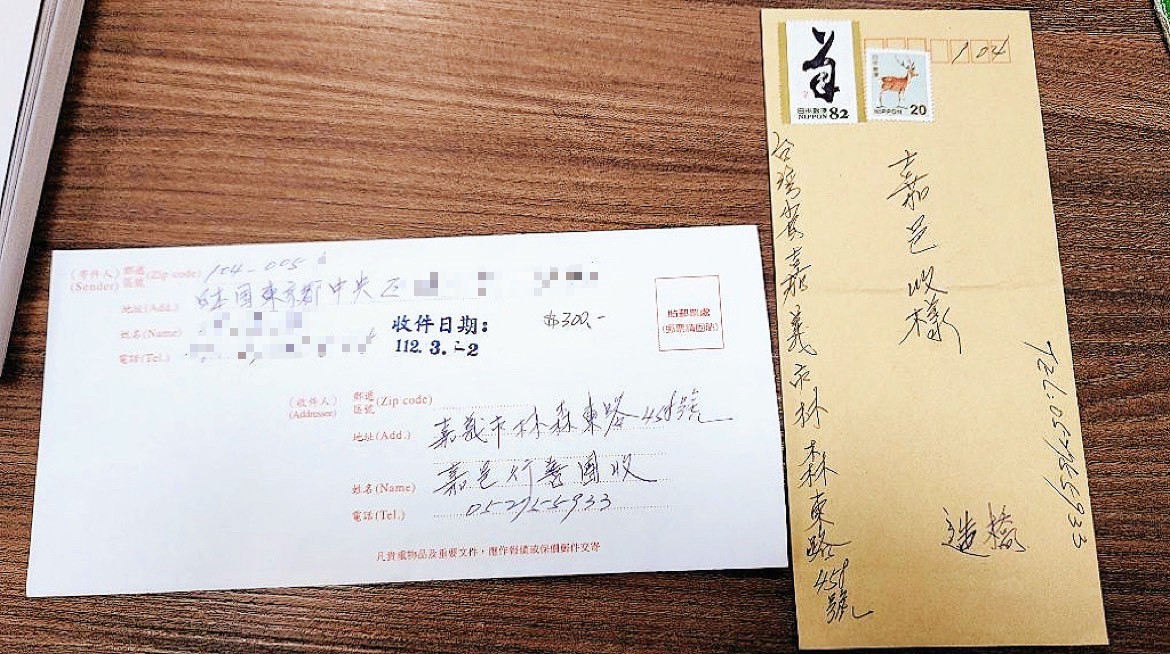 (寄件人) 郵遞
(Sender) 區號 (Zip code) 104-005
地址(Add.) 日本國東京都中央区
姓名(Name)
電話(Tel.)
收件日期:
112. 3. -2
$300.-
貼郵票處
(郵票請固貼)
(收件人) 郵遞
(Addressee) 區號 (Zip code)
地址(Add.) 嘉義市林森東路458號
姓名(Name) 嘉邑行善團收
電話(Tel.) 052765933
凡貴重物品及重要文件，應作報值或保價郵件交寄
日本郵便
NIPPON 82
日本郵便
NIPPON 20
104
台灣省嘉義市林森東路458號
嘉邑收樣
造橋
Tel:052765933